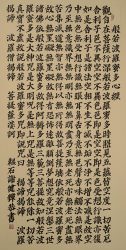 般若波羅蜜多心經
觀自在菩薩行深般若波羅蜜多時照見五蘊皆空度一切
苦厄舍利子色不異空空不異色色即是空空即是色受想
行識亦復如是舍利子是諸法空相不生不滅不垢不淨不
增不減是故空中無色無受想行識無眼耳鼻舌身意無色
聲香味觸法無眼界乃至無意識界無無明亦無無明盡乃
至無老死亦無老死盡無苦集滅道無智亦無得以無所得
故菩提薩埵依般若波羅蜜多故心無罣礙無罣礙故無有
恐怖遠離顛倒夢想究竟涅槃三世諸佛依般若波羅蜜多
故得阿耨多羅三藐三菩提故知般若波羅蜜多是大神咒
是大明咒是無上咒是無等等咒能除一切苦真實不虛故
說般若波羅蜜多咒即說咒曰 揭諦 揭諦 波羅
揭諦 波羅僧揭諦 菩提薩婆訶
書